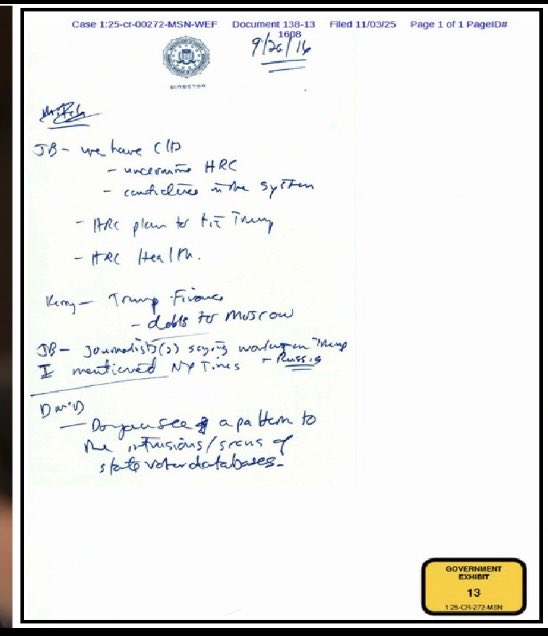 Case 1:25-cr-00272-MSN-WEF Document 138-13 Filed 11/03/25 Page 1 of 1 PageID#
1608
9/26/16
DIRECTOR
JB - we have CIA
- undermine HRC
- confidence in the system
- HRC plan to tie Trump
- HRC Health.
Trump Finance
- debts to Moscow
JB - Journalists(2) saying working on Trump
I mentioned NY Times + Russia
- Do you see a pattern to
the intrusions/scans of
state voter databases.
GOVERNMENT
EXHIBIT
13
1:25-CR-272-MSN